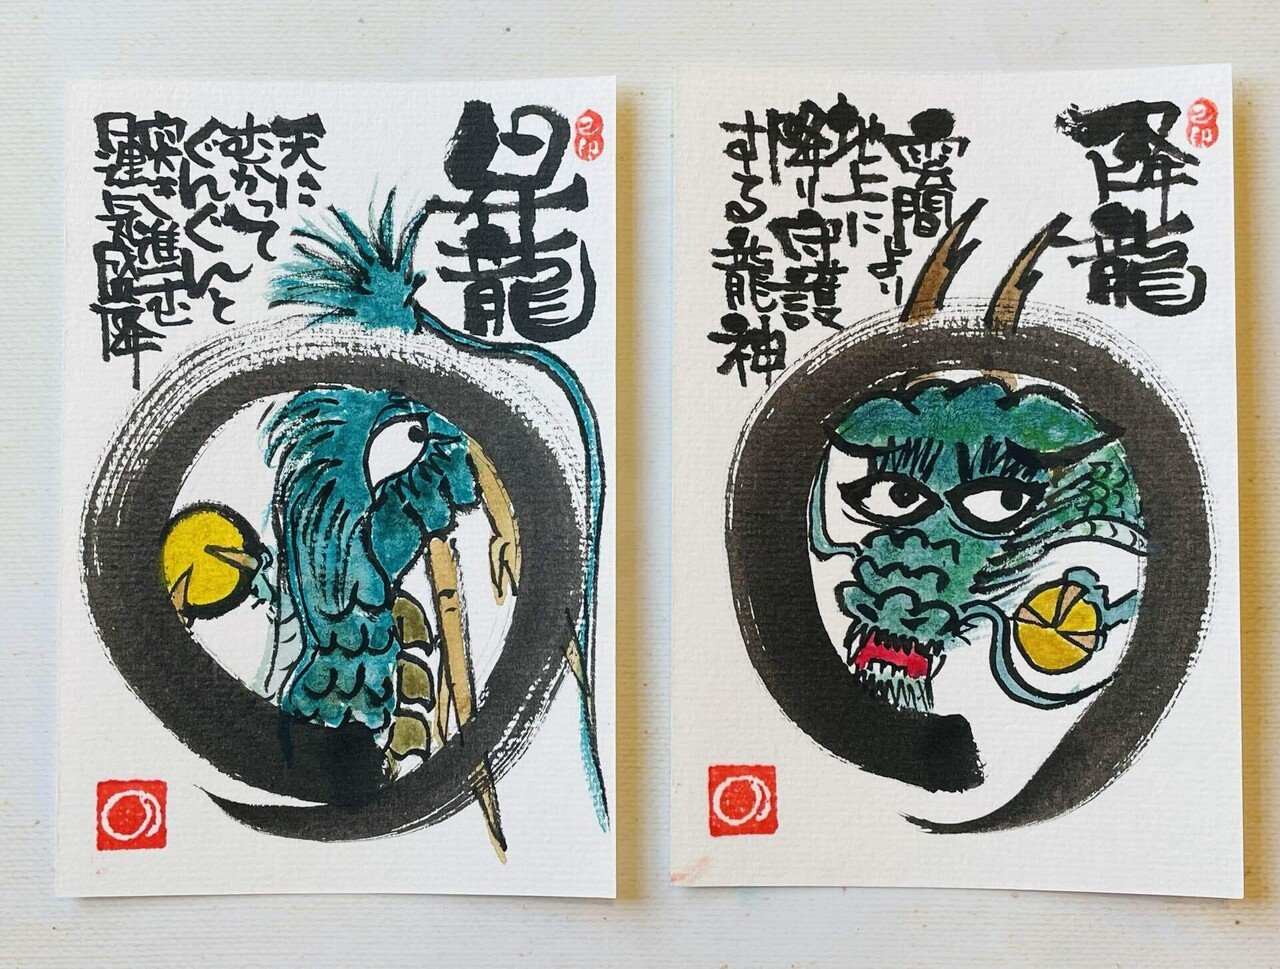 昇龍
天に
むかって
ぐんぐんと
突き進む
降龍
雲間より
地上に
降り守護
する龍神